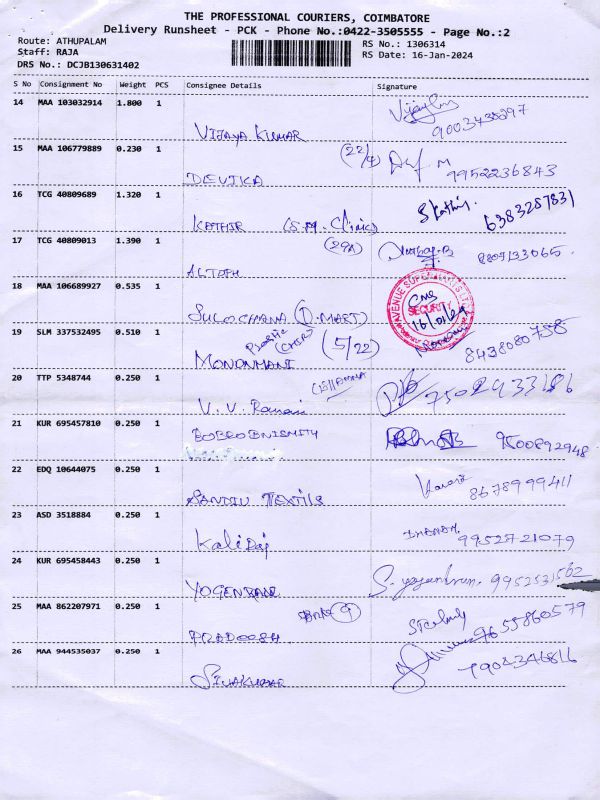 THE PROFESSIONAL COURIERS, COIMBATORE
Delivery Runsheet - PCK - Phone No.:0422-3505555 - Page No.:2
Route: ATHUPALAM
Staff: RAJA
DRS No.: DCJB130631402
RS No.: 1306314
RS Date: 16-Jan-2024
S No Consignment No Weight PCS Consignee Details Signature
14 MAA 103032914 1.800 1
VIJAYA KUMAR 9003438297
15 MAA 106779889 0.230 1
DEVIKA (22/4) M 9952236843
16 TCG 40809689 1.320 1
KATHIR (S.M. Clinic) S Kathir 6383287831
17 TCG 40809013 1.390 1
ALTOPH (29A) 8807133065
18 MAA 106689927 0.535 1
SULOCHANA (D.MART) SECURITY 16/01/24
19 SLM 337532495 0.510 1
MONONMANI (5/22) 8438080758
20 TTP 5348744 0.250 1
V.V. Ramani
21 KUR 695457810 0.250 1
9500892948
22 EDQ 10644075 0.250 1
SANDIU TEXTILS 8678999411
23 ASD 3518884 0.250 1
Kalidaj 9952721079
24 KUR 695458443 0.250 1
YOGENRAN 9952531562
25 MAA 862207971 0.250 1
PRADOOSH 9655860579
26 MAA 944535037 0.250 1
SIVAKUMAR 7904346816